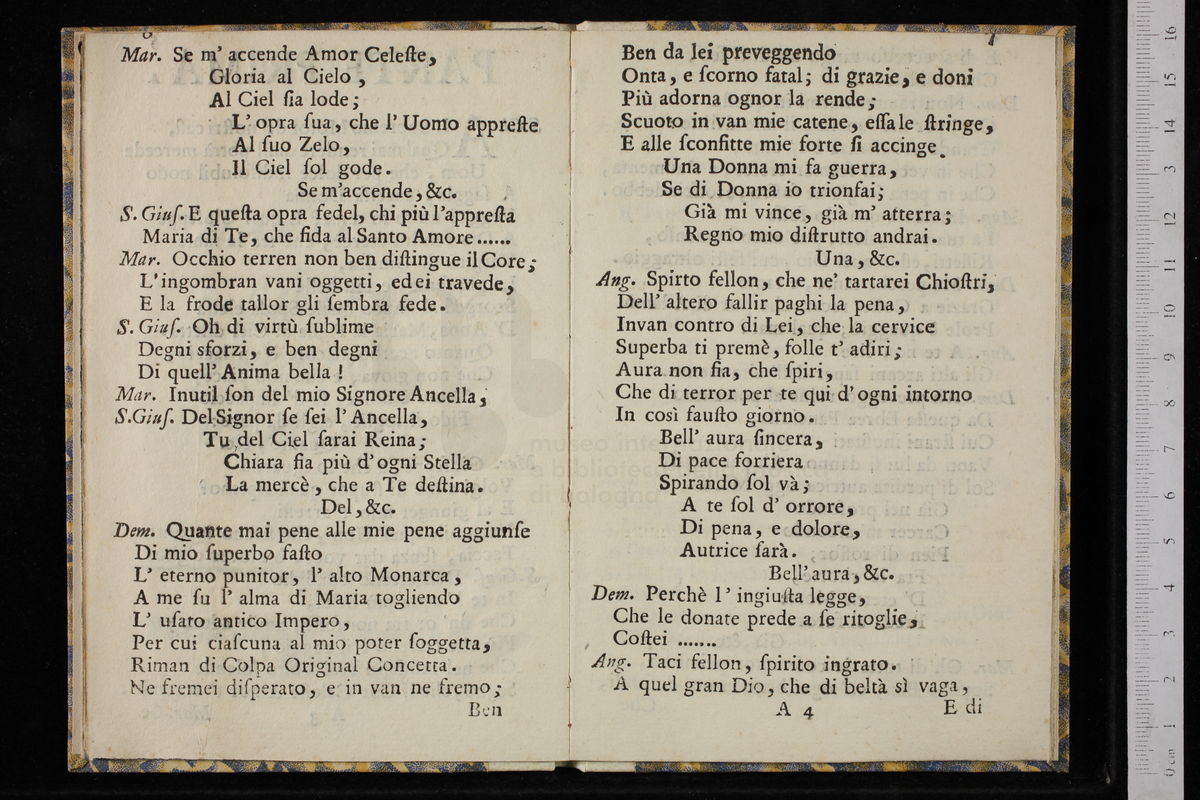 Mar. Se m' accende Amor Celeſte,
Gloria al Cielo,
Al Ciel ſia lode;
L' opra ſua, che l' Uomo appreſte
Al ſuo Zelo,
Il Ciel ſol gode.
Se m'accende, &c.
S. Giuſ. E queſta opra fedel, chi più l'appreſta
Maria di Te, che ſida al Santo Amore......
Mar. Occhio terren non ben diſtingue il Core;
L'ingombran vani oggetti, ed ei travede,
E la frode tallor gli ſembra fede.
S. Giuſ. Oh di virtù ſublime
Degni sforzi, e ben degni
Di quell' Anima bella!
Mar. Inutil ſon del mio Signore Ancella,
S. Giuſ. Del Signor ſe ſei l' Ancella,
Tu del Ciel ſarai Reina;
Chiara fia più d' ogni Stella
La mercè, che a Te deſtina.
Del, &c.
Dem. Quante mai pene alle mie pene aggiunſe
Di mio ſuperbo faſto
L' eterno punitor, l' alto Monarca,
A me ſu l' alma di Maria togliendo
L' uſato antico Impero,
Per cui ciaſcuna al mio poter ſoggetta,
Riman di Colpa Original Concetta.
Ne fremei diſperato, e in van ne fremo;
Ben
Ben da lei preveggendo
Onta, e ſcorno fatal; di grazie, e doni
Più adorna ognor la rende;
Scuoto in van mie catene, eſſa le ſtringe,
E alle ſconfitte mie forte ſi accinge.
Una Donna mi fa guerra,
Se di Donna io trionfai;
Già mi vince, già m' atterra;
Regno mio diſtrutto andrai.
Una, &c.
Ang. Spirto fellon, che ne' tartarei Chioſtri,
Dell' altero fallir paghi la pena,
Invan contro di Lei, che la cervice
Superba ti premè, folle t' adiri;
Aura non fia, che ſpiri,
Che di terror per te qui d' ogni intorno
In così fauſto giorno.
Bell' aura ſincera,
Di pace foriera
Spirando ſol và;
A te ſol d' orrore,
Di pena, e dolore,
Autrice ſarà.
Bell' aura, &c.
Dem. Perchè l' ingiuſta legge,
Che le donate prede a ſe ritoglie,
Coſtei .......
Ang. Taci fellon, ſpirito ingrato.
A quel gran Dio, che di beltà sì vaga,
A 4
E di